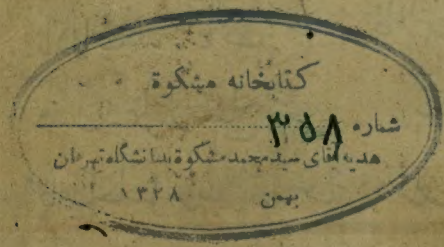 کتابخانه مشکوة
شماره ۳۵۸
هدیه آقای سید محمد مشکوة بدانشگاه تهران
بهمن ۱۳۲۸